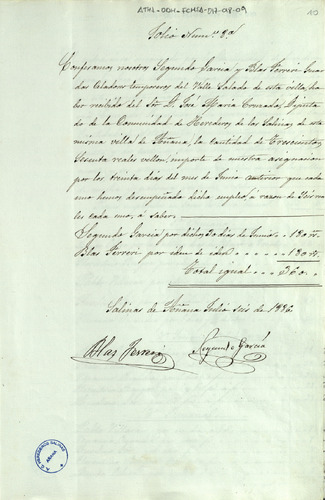 ATHA-DOH-FCMSA-017-08-09
10
Folio Num.º 89
Confesamos nosotros Segundo Garcia y Blas Ferreri Guar
das Celadores temporeros del Valle Salado de esta villa, ha
ber recibido del Sr. D. José Maria Diputa
do de la Comunidad de Herederos de las Salinas de esta
misma villa de Añana, la cantidad de Trescientos
Sesenta reales vellon, importe de nuestra asignacion
por los treinta dias del mes de Junio anterior que cada
uno hemos desempeñado dicho empleo, á razon de Seis rea
les cada uno, á saber.
Segundo Garcia por dichos 30 dias de Junio . . 180 rs.
Blas Ferreri por idem de idem . . . . 180 rs.
Total igual . . . 360 .
Salinas de Añana Julio seis de 1886.
Blas Ferreri Segundo Garcia